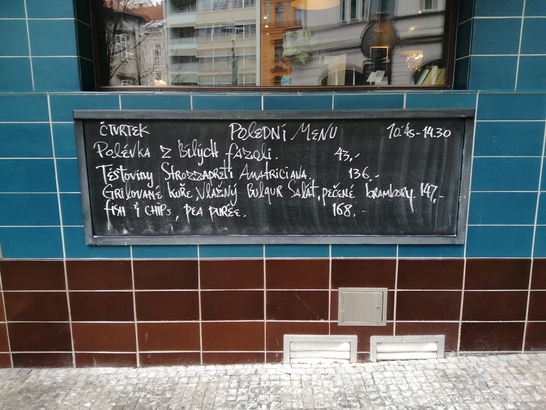 ČTVRTEK POLEDNÍ MENU 10:45-14.30
POLÉVKA Z BÍLÝCH FAZOLÍ. 43,-
TĚSTOVINY STROZZAPRETI AMATRICIANA 136.-
GRILOVANÉ KUŘE, VLAŽNÝ BULGUR SALÁT, PEČENÉ BRAMBORY. 147,-
FISH & CHIPS, PEA PUREE. 168,-